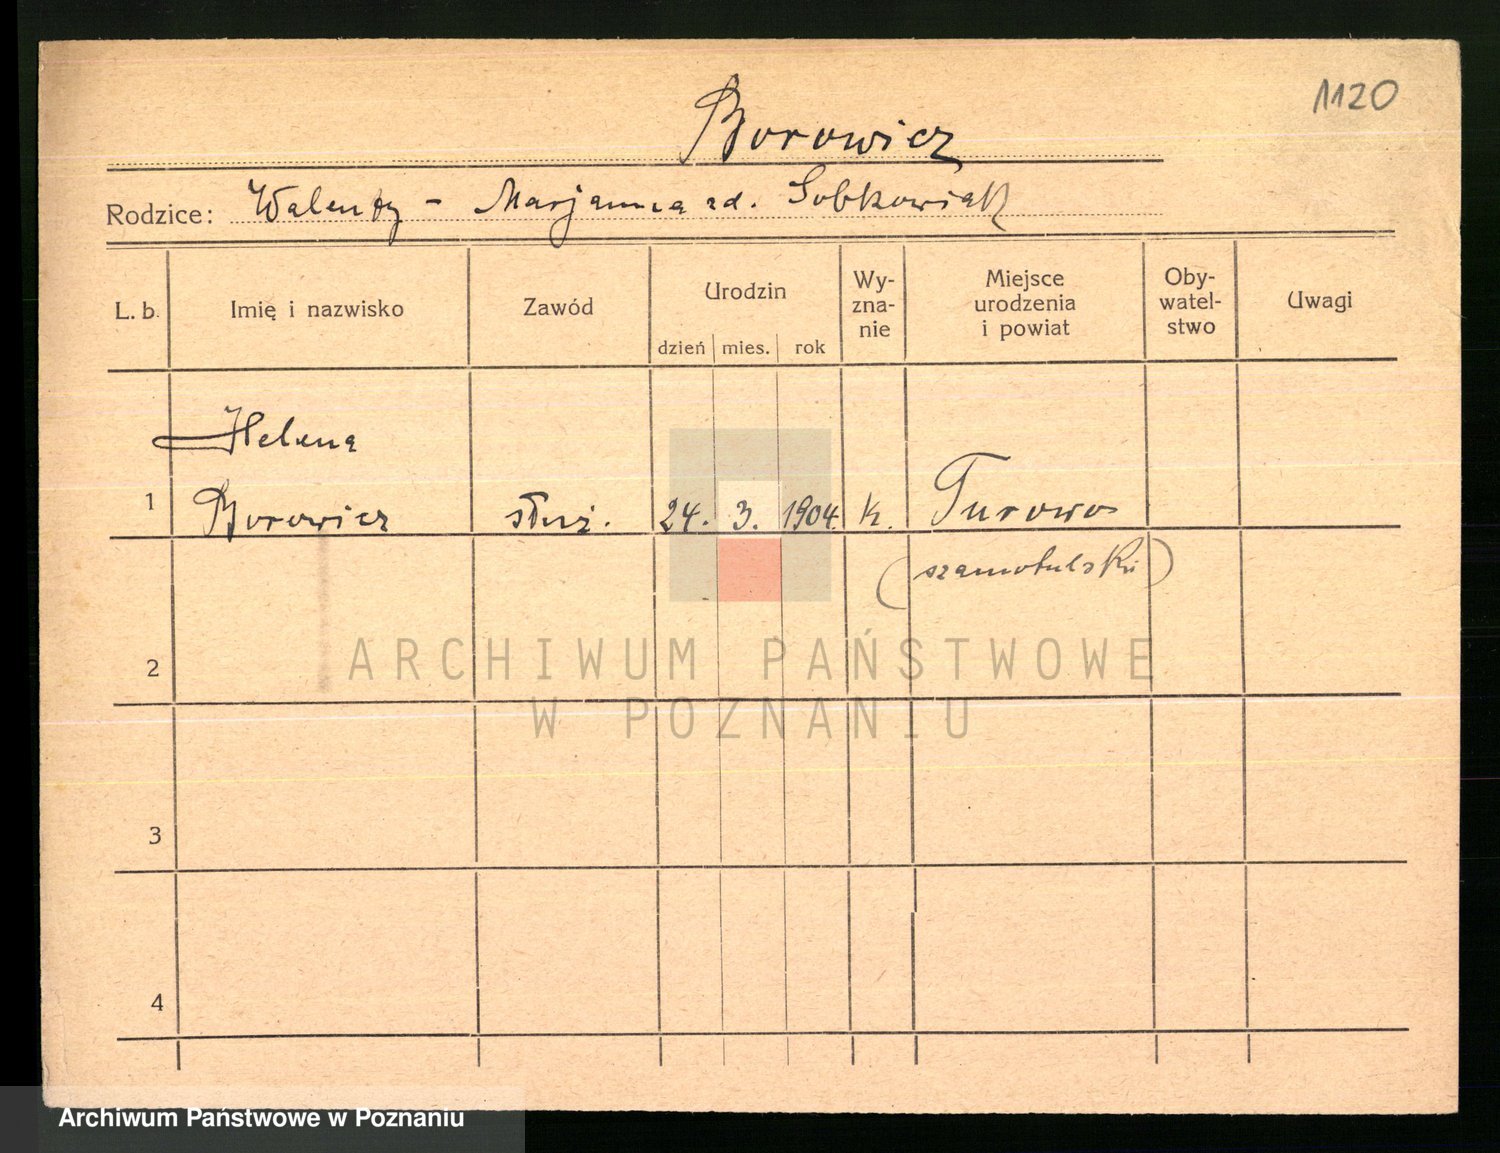 1120
Borowicz
Rodzice: Walenty - Marjanna zd. Sobkowiak
L. b. Imię i nazwisko Zawód Urodzin dzień mies. rok Wy-zna-nie Miejsce urodzenia i powiat Oby-watel-stwo Uwagi
Helena
1 Borowicz służ. 24. 3. 1904. k. Turowo
(szamotulski)
2
ARCHIWUM PAŃSTWOWE
W POZNANIU
3
4
Archiwum Państwowe w Poznaniu